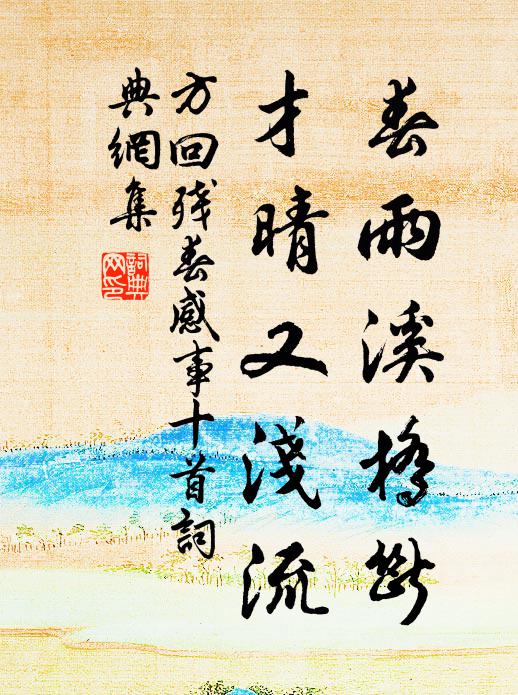 春雨溪橋斷
才晴又淺流
方回殘春感事十首詞
典網集
詞典網印